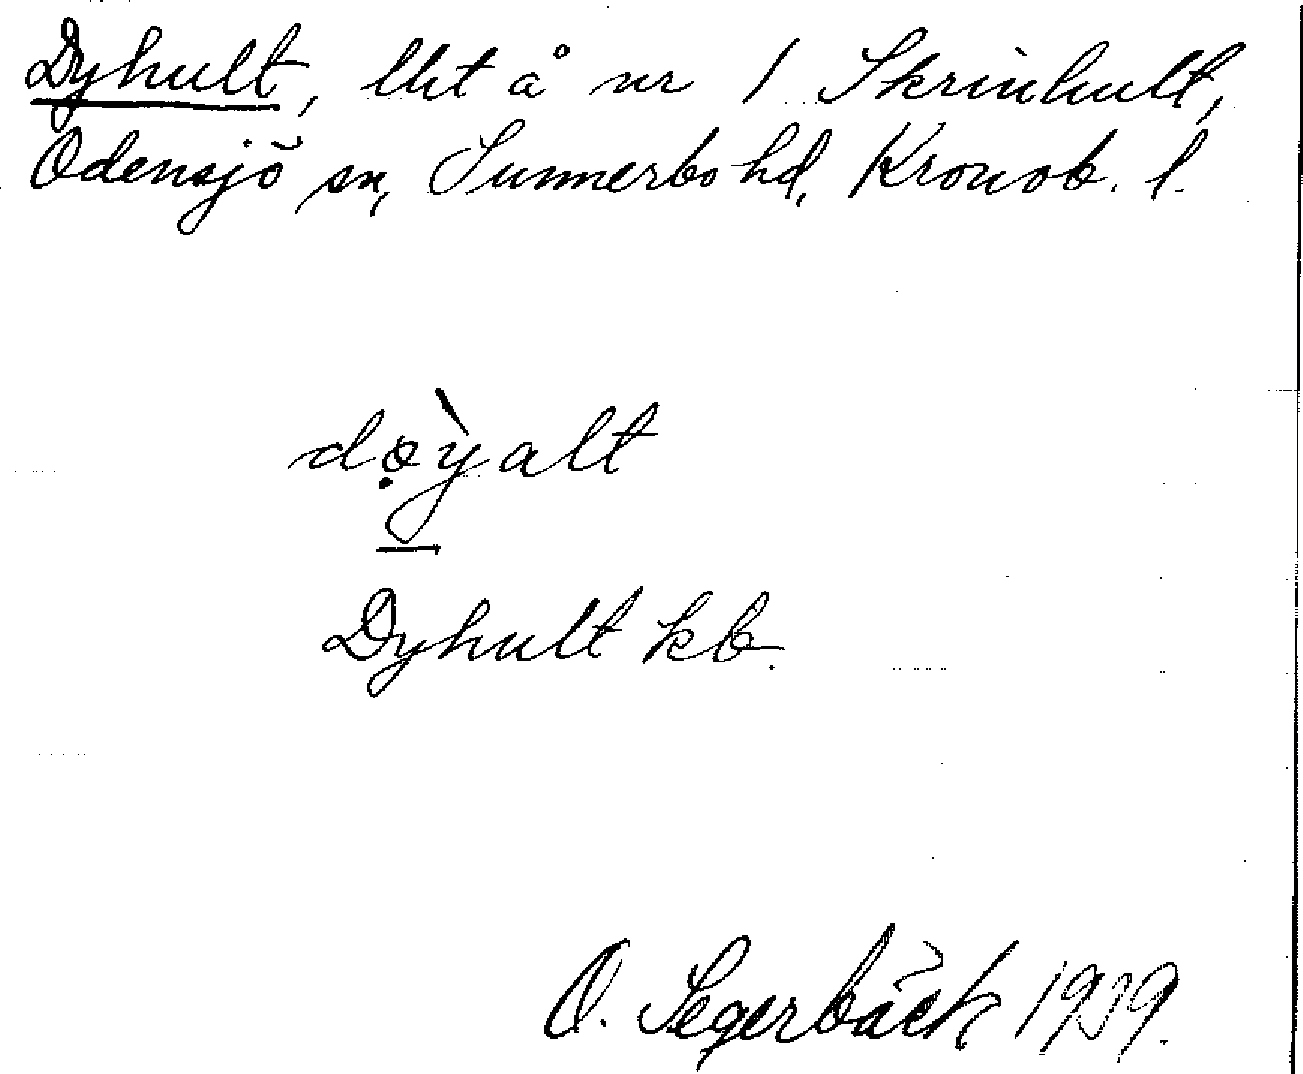 Dyhult, lht å nr 1 Skrinhult,
Odensjö sn, Sunnerbo hd, Kronob. l.
dọỳalt
Dyhult kb.
O. Segerbäck 1939.